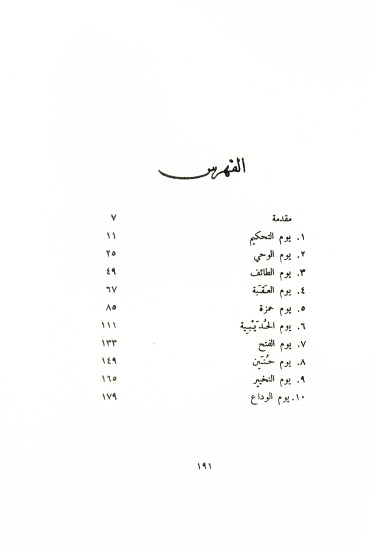 الفهرس
مقدمة ٧
١. يوم التحكيم ١١
٢. يوم الوحي ٢٥
٣. يوم الطائف ٤٩
٤. يوم العَقَبة ٦٧
٥. يوم حمزة ٨٥
٦. يوم الحُدَيْبِية ١١١
٧. يوم الفتح ١٣٣
٨. يوم حُنَين ١٤٩
٩. يوم التخيير ١٦٥
١٠. يوم الوداع ١٧٩
١٩١